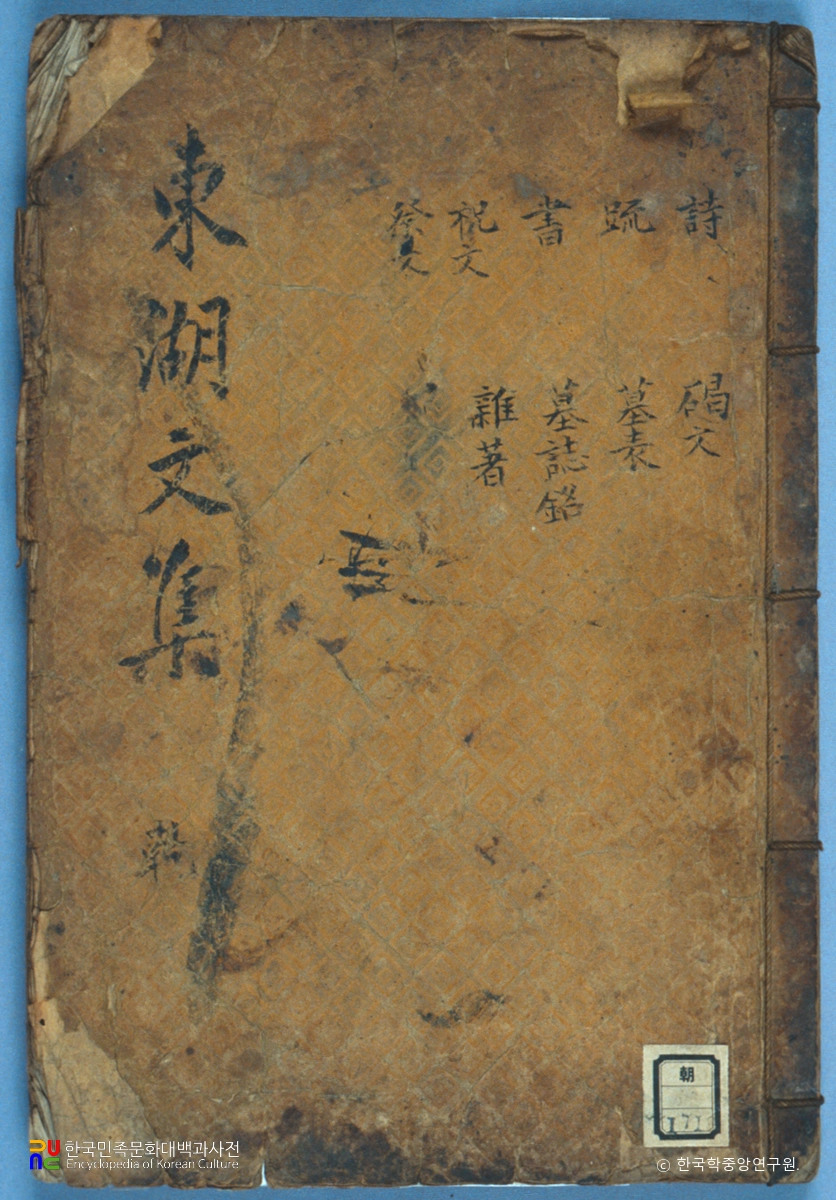 東湖文集
詩
疏
書
祝文
祭文
碣文
墓表
墓誌銘
雜著
朝
171
한국민족문화대백과사전
Encyclopedia of Korean Culture
© 한국학중앙연구원.